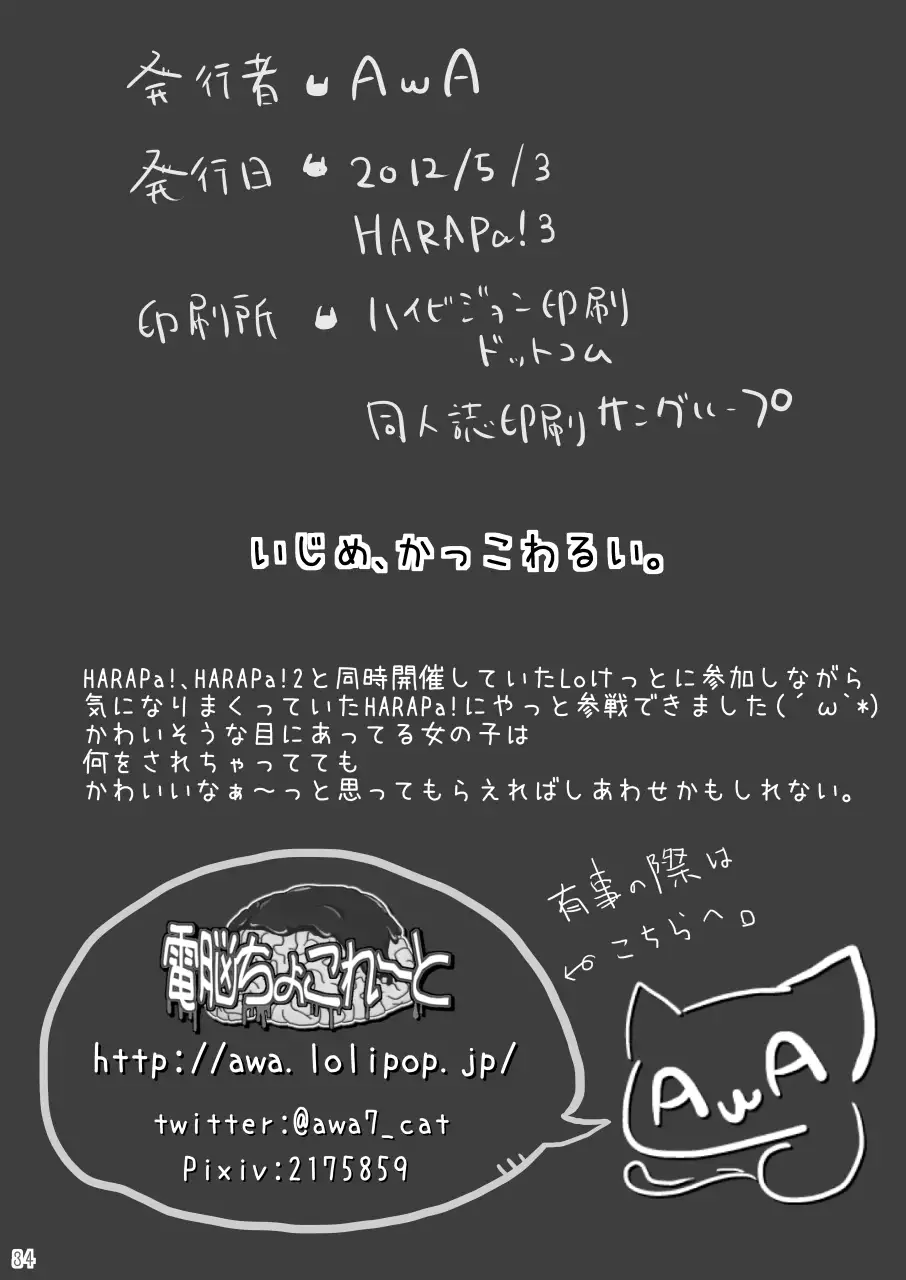 発行者 AwA
発行日 2012/5/3
HARAPa!3
印刷所 ハイビジョン印刷
ドットコム
同人誌印刷サングループ
いじめ、かっこわるい。
HARAPa!、HARAPa!2と同時開催していたLoけっとに参加しながら
気になりまくっていたHARAPa!にやっと参戦できました(´ω`*)
かわいそうな目にあってる女の子は
何をされちゃってても
かわいいなぁ～っと思ってもらえればしあわせかもしれない。
有事の際は
←こちらへ。
電脳ちょこれーと
http://awa.lolipop.jp/
twitter:@awa7_cat
Pixiv:2175859
AwA
84